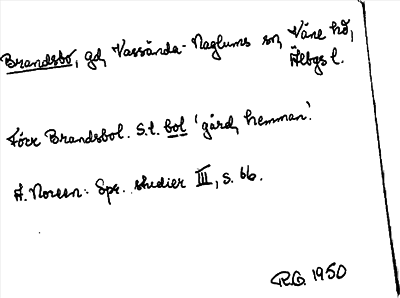 Brandsbo, gd, Vassända-Naglums sn, Väne hd,
Älbgs l.
Förr Brandsbol. S.t. bol 'gård, hemman'.
A. Noreen: Spr. studier III, s. 66.
R.G. 1950